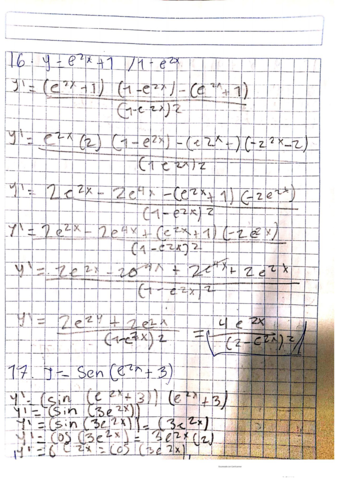 16. y = e^2x + 1 / 1 - e^2x
y' = (e^2x + 1) (1 - e^2x) - (e^2x + 1) / (1 - e^2x)^2
y' = e^2x (2) (1 - e^2x) - (e^2x + ) (-2^2x - 2) / (1 - e^2x)^2
y' = 2e^2x - 2e^4x - (e^2x + 1) (-2e^2x) / (1 - e^2x)^2
y' = 2e^2x - 2e^4x + (e^2x + 1) (-2e^x) / (1 - e^2x)^2
y' = 2e^2x - 2e^4x + 2e^4x + 2e^2x / (1 - e^2x)^2
y' = 2e^2x + 2e^2x / (1 - e^2x)^2 = 4e^2x / (2 - e^2x)^2
17. y = Sen (e^2x + 3)
y' = (sin (e^2x + 3)) (e^2x + 3)
y' = (sin (3e^2x))
y' = (sin (3e^2x)) = (3e^2x)
y' = cos (3e^2x) = 3e^2x (2)
y' = 6e^2x = cos (3e^2x)